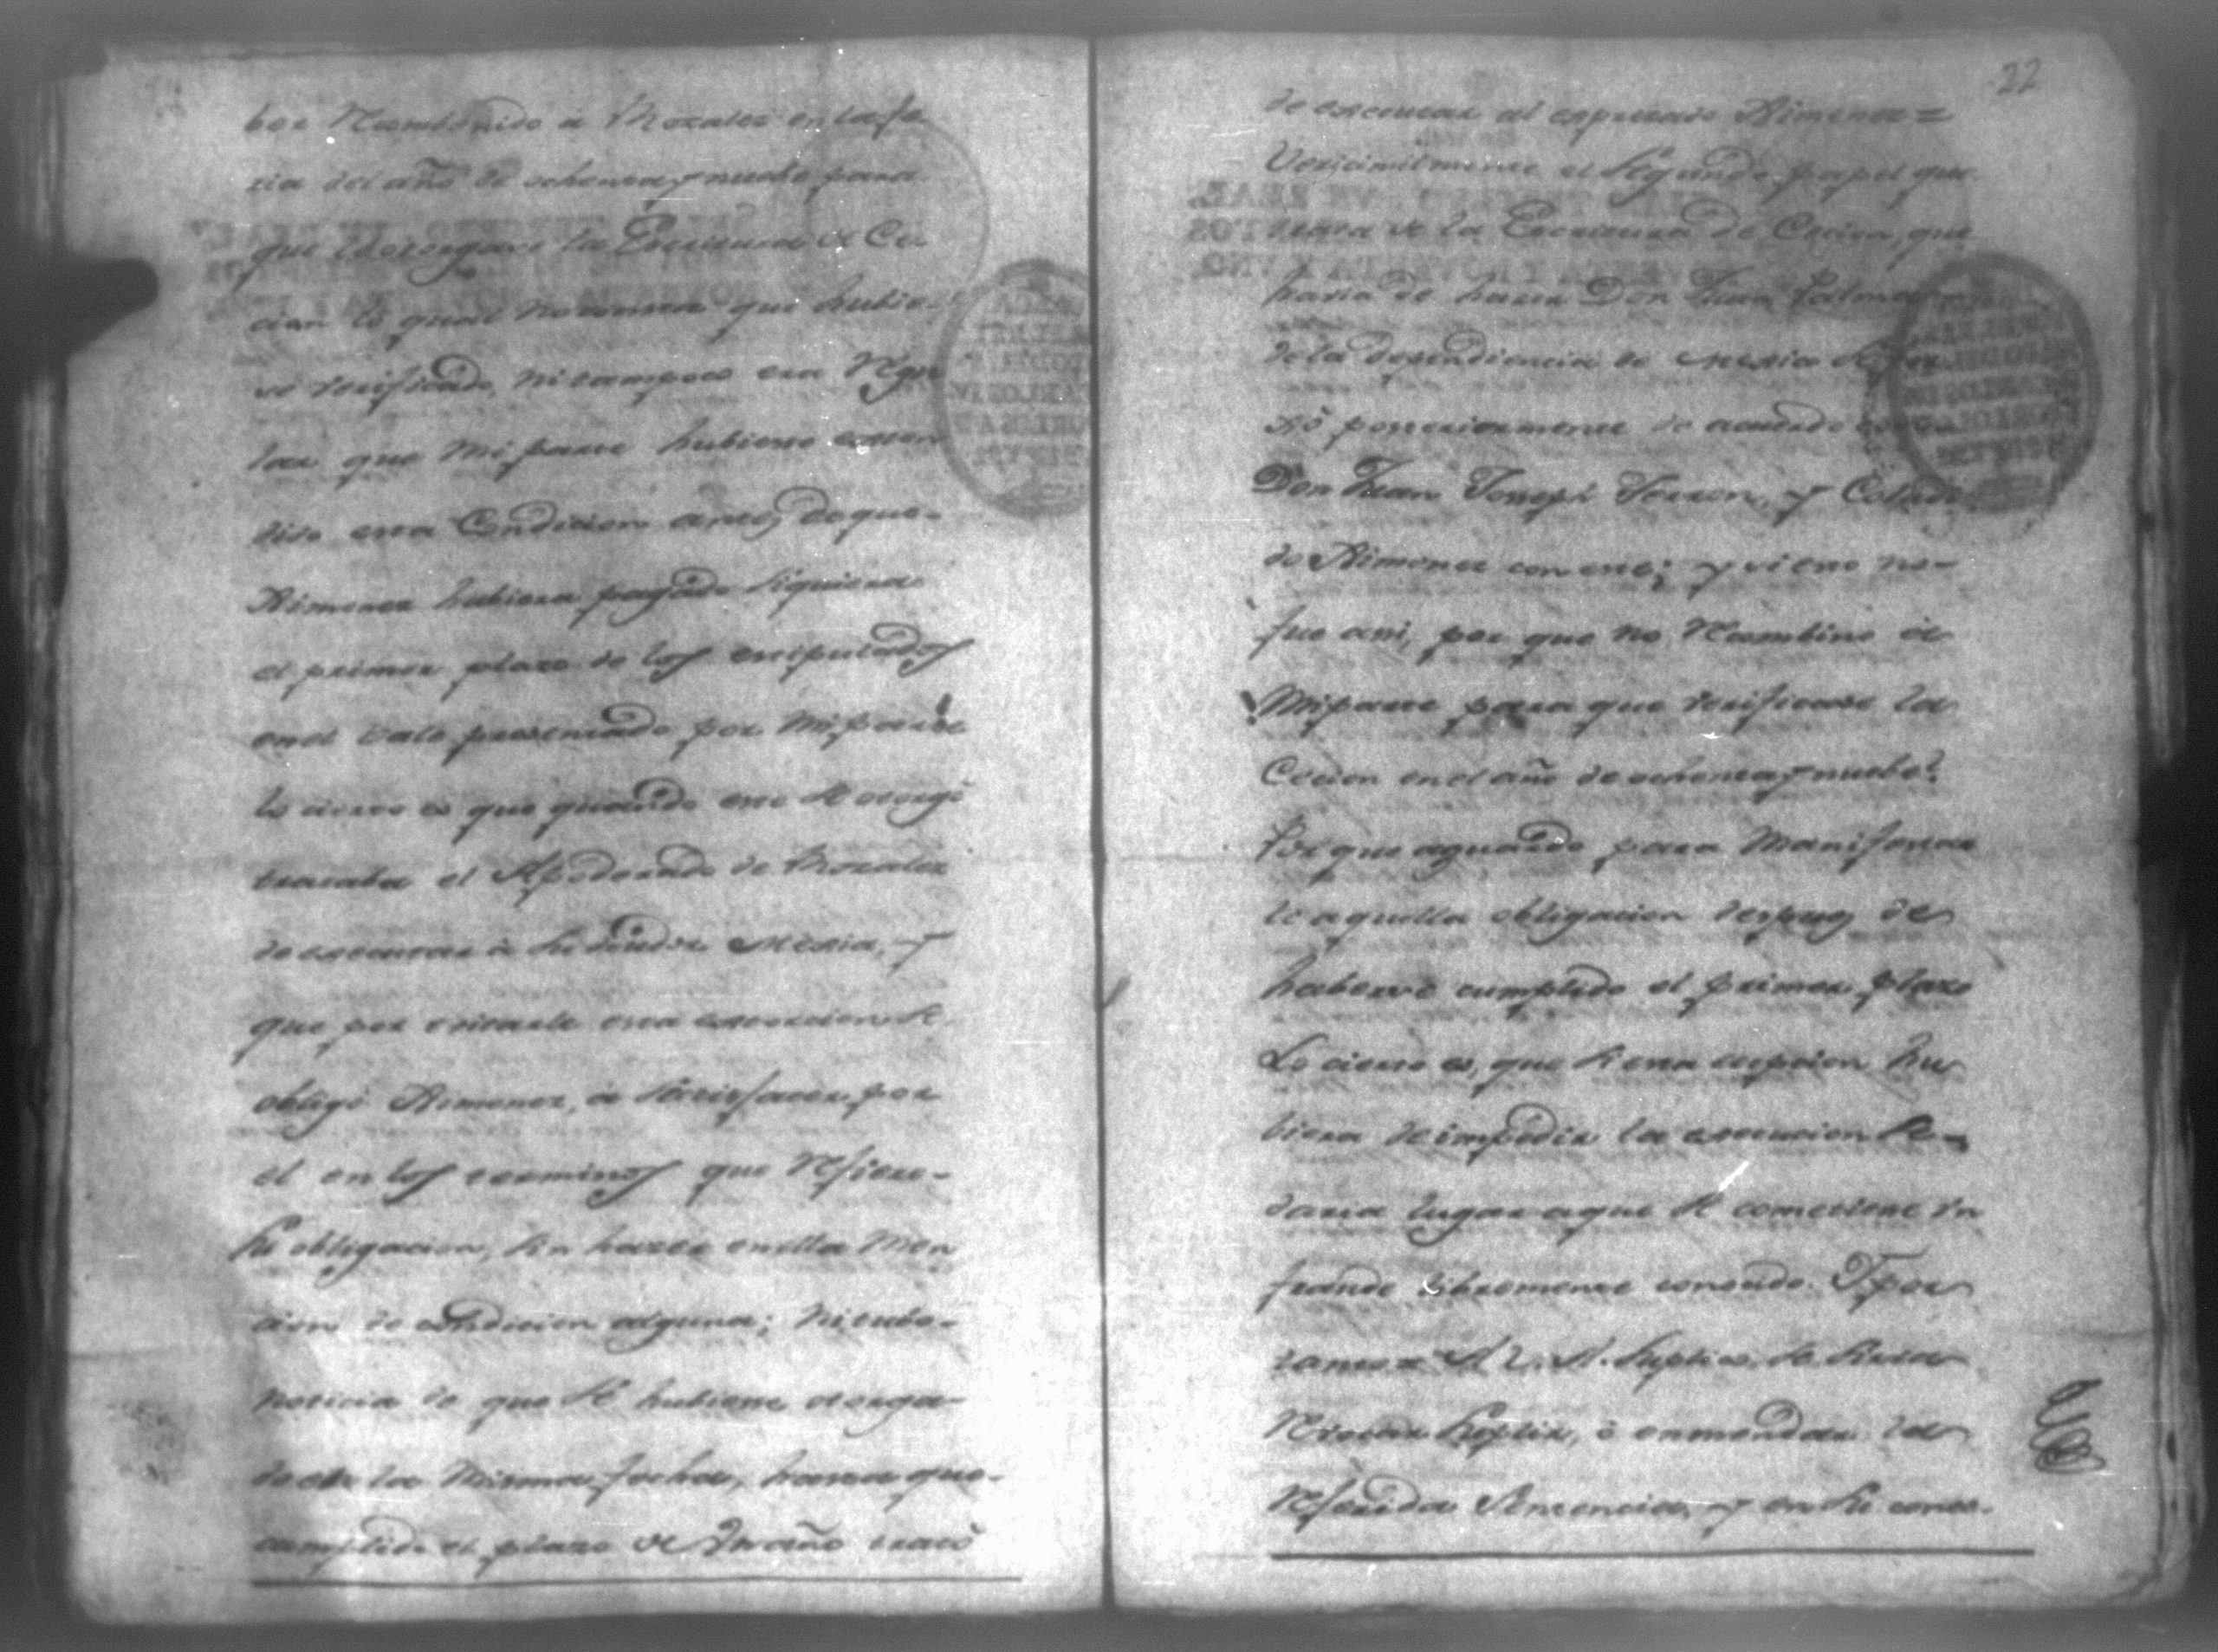 ber Reembenido à Morales en la fe
ria del año de ochenta y nuebe para
que le otorgare la Escritura de Ce
cion lo qual no consta que hubie-
se verificado, ni tampoco era Regu
lar que mi parte hubiese
dido esta Condicion antes de que-
Ximenez hubiera pagado siquiera
el primer plazo de los estipulados
en el vale presentado por mi parte
lo cierto es que quando este se otorgò
trataba el Apoderado de Morales
de executar à su deudor Mexia, y
que por evitarle esta execucion se
obligò Ximenez, à satisfacer por
el en los terminos que Refiere-
su obligacion, sin hazer en ella men
cion de condicion alguna; ni tubo-
noticia de que se hubiese otorga-
do la misma fecha, hasta que-
cumplido el plazo de un año tratò
22
de executar al expresado Ximenez=
Verisimilmente el Segundo papel que
trata de la Escritura de Cecion, que
havia de hazer Don Juan Palma
de la dependiencia de Mexia se
posteriormente de acuerdo
Don Juan Joseph Terron, y
do Ximenez con este; y si esto no-
fue asi, por que no Reembino à
mi parte para que verificase la
Cecion en el año de ochenta y nuebe?
Por que aguardo para manifestar
le aquella obligacion despues de
haberse cumplido el primer plazo
Lo cierto es, que si esta cepcion hu
biera de impedir la execucion se-
daria lugar a que se cometiese un
fraude libremente Y por
tanto= A V. A. Suplico se sirva
Revocar suplir, ò enmendar la
Referida Sentencia, y en su conse-